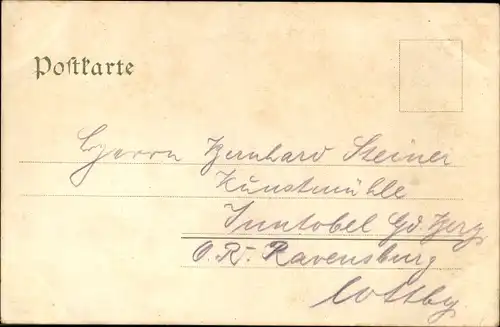 Postkarte
Herrn Bernhard Steiner
Kunstmühle
Inntobel Gd. Berg
O. A. Ravensburg
Wttbg.